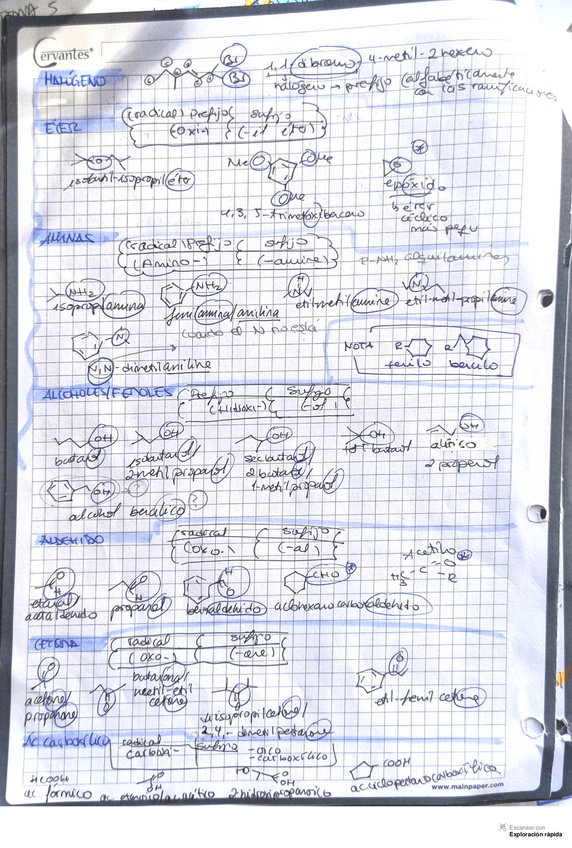 Cervantes
HALÓGENO
Br
Br
1,1-dibromo-4-metil-2-hexeno
halógeno → prefijo (alfabéticamente
con las ramificaciones
ÉTER
(radical) Prefijo { Sufijo
(Oxi-) { (-il éter)
isobutil-isopropil éter
MeO
OMe
OMe
epóxido
éter
cíclico
más pequ
AMINAS
(radical) Prefijo { sufijo
(Amino-) { (-amine)
R-NH2 alquilaminas
NH2
isopropilamina
NH2
fenilamina/anilina
etil-metilamine
etil-metil-propilamine
cuando el N no está
N,N-dimetilaniline
NOTA
R
fenilo
R
bencilo
ALCHOLES/FENOLES
Prefijo { Sufijo
(Hidroxi-) { (-ol)
OH
butanol
OH
isobutanol/
2-metil propanol
OH
secbutanol
2 butanol/
1-metil propanol
OH
tert butanol
OH
alílico
2 propenol
OH
alcohol bencílico ?
ALDEHIDO
radical { sufijo
(Oxo-) { (-al)
Acetilo
etanal/
acetaldehido
propanal
benzaldehido
CHO
ciclohexanocarboxaldehido
CETONA
radical { sufijo
(oxo-) { (-one)
acetone/
propanone
butanona/
metil-etil
cetone
isopropilcetone/
2,4,-dimetil pentanone
etil-fenil cetone
Ac carboxílico
radical { Sufijo - oico
carboxi- - carboxílico
HCOOH
ac fórmico
OH
HO
OH
2 hidroxipropanoico
COOH
ac ciclopentanocarboxílico
www.mainpaper.com
Escanear con
Exploración rápida